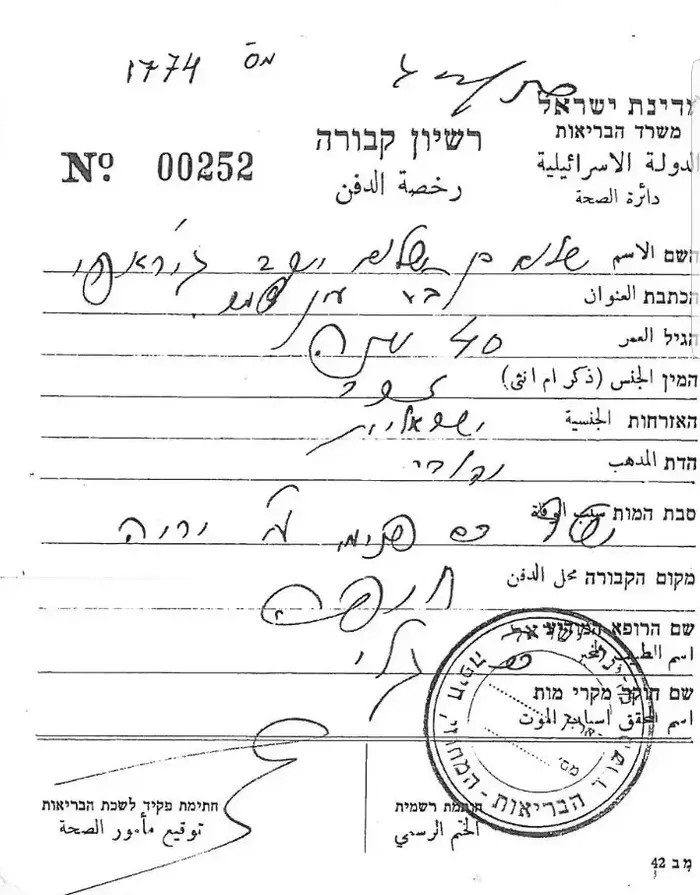 מס 1774
מדינת ישראל
משרד הבריאות
רשיון קבורה
الدولة الاسرائيلية
دائرة الصحة
رخصة الدفن
Nº 00252
השם الاسم שלום בן שלום
הכתבת العنوان
הגיל العمر 40 שנה
המין الجنس (ذكر ام انثى) זכר
האזרחות الجنسية ישראלית
הדת المذهب יהודי
סבת המות سبب الوفاة דם פנימי ע"י יריה
מקום הקבורה محل الدفن חיפה
שם הרופא המודיע
اسم الطبيب المخبر
שם חוקר מקרי מות
اسم المحقق اسباب الموت
חתימת פקיד לשכת הבריאות
توقيع مأمور الصحة
חותמת רשמית
الختم الرسمي
משרד הבריאות - המחוז חיפה
מס.
מ ב 42